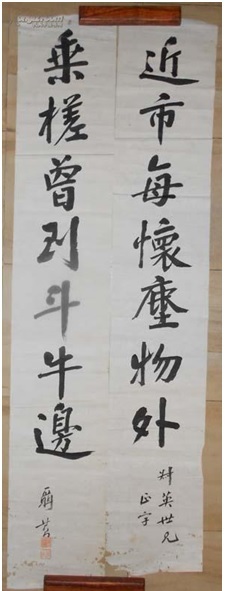 近市每懷塵物外
英世兄
正字
乘槎曾到斗牛邊